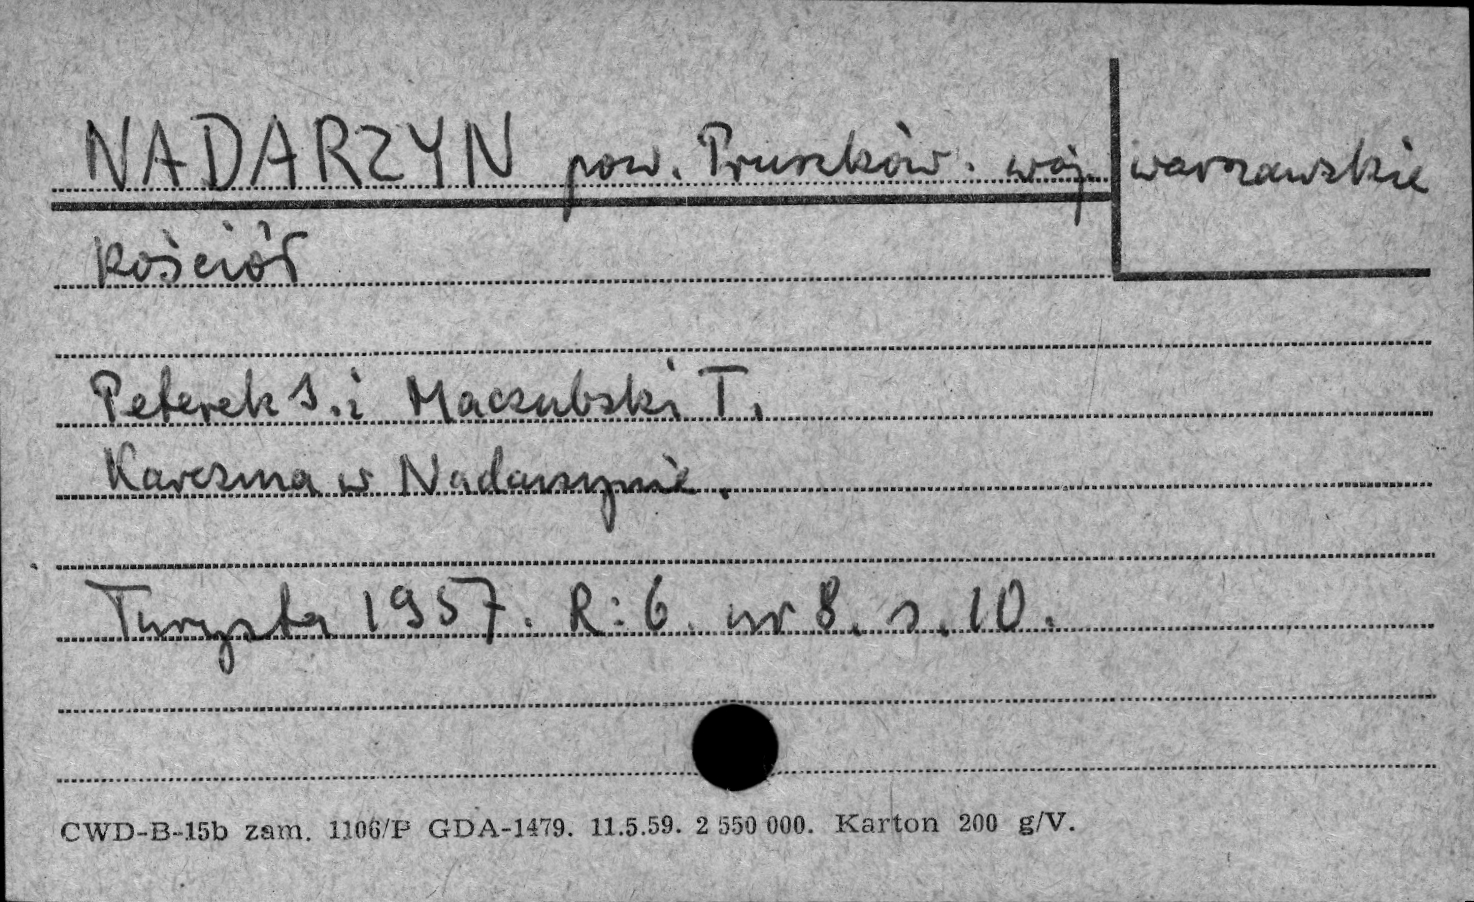 NADARZYN pow. Pruszków. woj. warszawskie
Kościół
Peterek J. i Maczubski T.
Karczma w Nadarzynie.
Turysta 1957. R: 6. nr 8. s. 10.
CWD-B-15b zam. 1106/P GDA-1479. 11.5.59. 2 550 000. Karton 200 g/V.